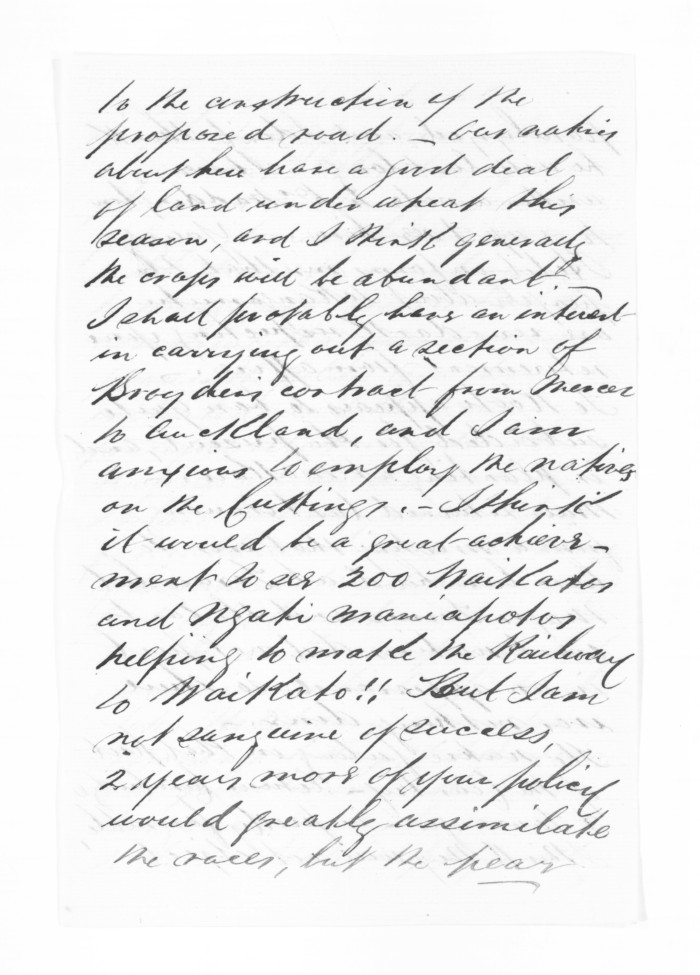 to the construction of the
proposed road. – Our natives
about here have a good deal
of land under wheat this
season, and I think generally
the crops will be abundant! –
I shall probably have an interest
in carrying out a section of
Brogden's contract from Mercer
to Auckland, and I am
anxious to employ the natives
on the Cuttings. – I think
it would be a great achieve-
ment to see 200 WaiKatos
and Ngati maniapotos
helping to make the Railway
to WaiKato!! But I am
not sanguine of success,
2 years more of your policy
would greatly assimilate
the races, but the pear